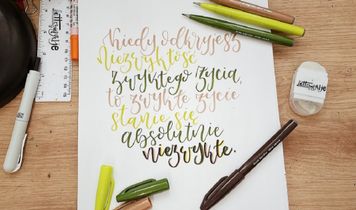 kiedy odkryjesz
Niezwykłość
zwykłego życia,
to zwykłe życie
stanie się
absolutnie
niezwykłe.